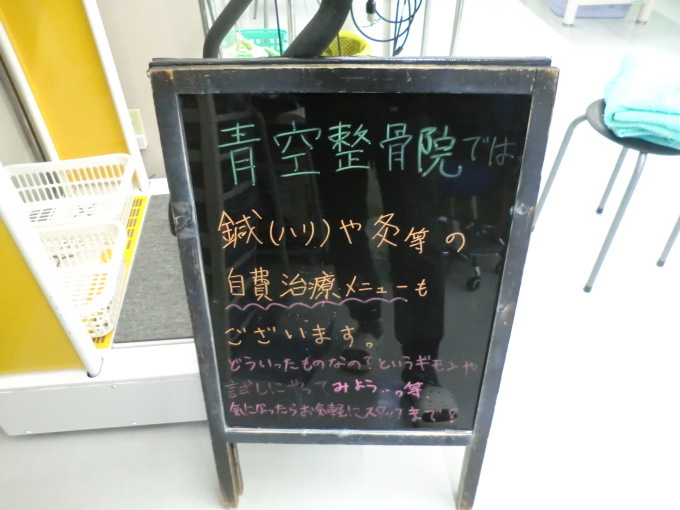 青空整骨院では、
鍼(ハリ)や灸等の
自費治療メニューも
ございます。
どういったものなの?というギモンや
試しにやってみよう…っ等
気になったらお気軽にスタッフまで?